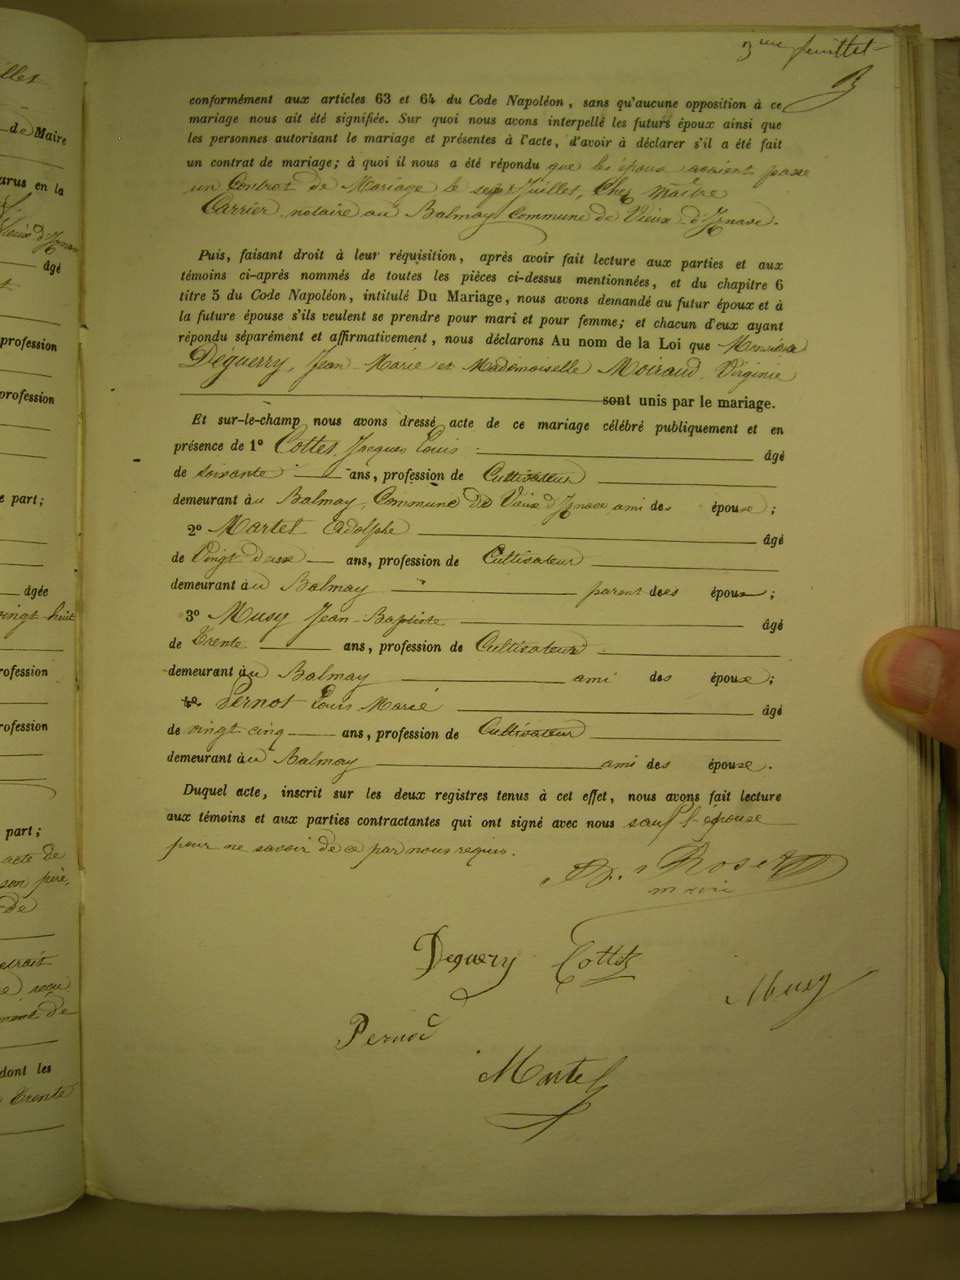 3me feuillet
conformément aux articles 63 et 64 du Code Napoléon, sans qu'aucune opposition à ce
mariage nous ait été signifiée. Sur quoi nous avons interpellé les futurs époux ainsi que
les personnes autorisant le mariage et présentes à l'acte, d'avoir à déclarer s'il a été fait
un contrat de mariage; à quoi il nous a été répondu que les époux avaient passé
un Contrat de Mariage le sept Juillet, Chez Maître
Carrier, notaire au Balmay Commune de Vieux d'Iznave.
Puis, faisant droit à leur réquisition, après avoir fait lecture aux parties et aux
témoins ci-après nommés de toutes les pièces ci-dessus mentionnées, et du chapitre 6
titre 5 du Code Napoléon, intitulé Du Mariage, nous avons demandé au futur époux et à
la future épouse s'ils veulent se prendre pour mari et pour femme; et chacun d'eux ayant
répondu séparément et affirmativement, nous déclarons Au nom de la Loi que Monsieur
Déguerry, Jean-Marie et Mademoiselle Moiraud, Virginie
sont unis par le mariage.
Et sur-le-champ nous avons dressé acte de ce mariage célébré publiquement et en
présence de 1° Cottet, Jacques Louis âgé
de soixante ans, profession de Cultivateur
demeurant au Balmay, Commune de Vieux d'Iznave, ami des épouse;
2° Martet Adolphe âgé
de Vingt deux ans, profession de Cultivateur
demeurant au Balmay parent des époux;
3° Musy Jean-Baptiste âgé
de Trente ans, profession de Cultivateur
demeurant au Balmay ami des épouse;
4° Pernot Louis Marie âgé
de vingt cinq ans, profession de Cultivateur
demeurant au Balmay ami des épouse.
Duquel acte, inscrit sur les deux registres tenus à cet effet, nous avons fait lecture
aux témoins et aux parties contractantes qui ont signé avec nous sauf l'épouse
pour ne savoir de ce par nous requis.
Roset
maire
Deguery Cottet
Musy
Pernod
Martel
de Maire
en la
âgé
profession
profession
part;
âgée
vingt huit
profession
profession
part;
acte de
son père,
de
dont les
Trente